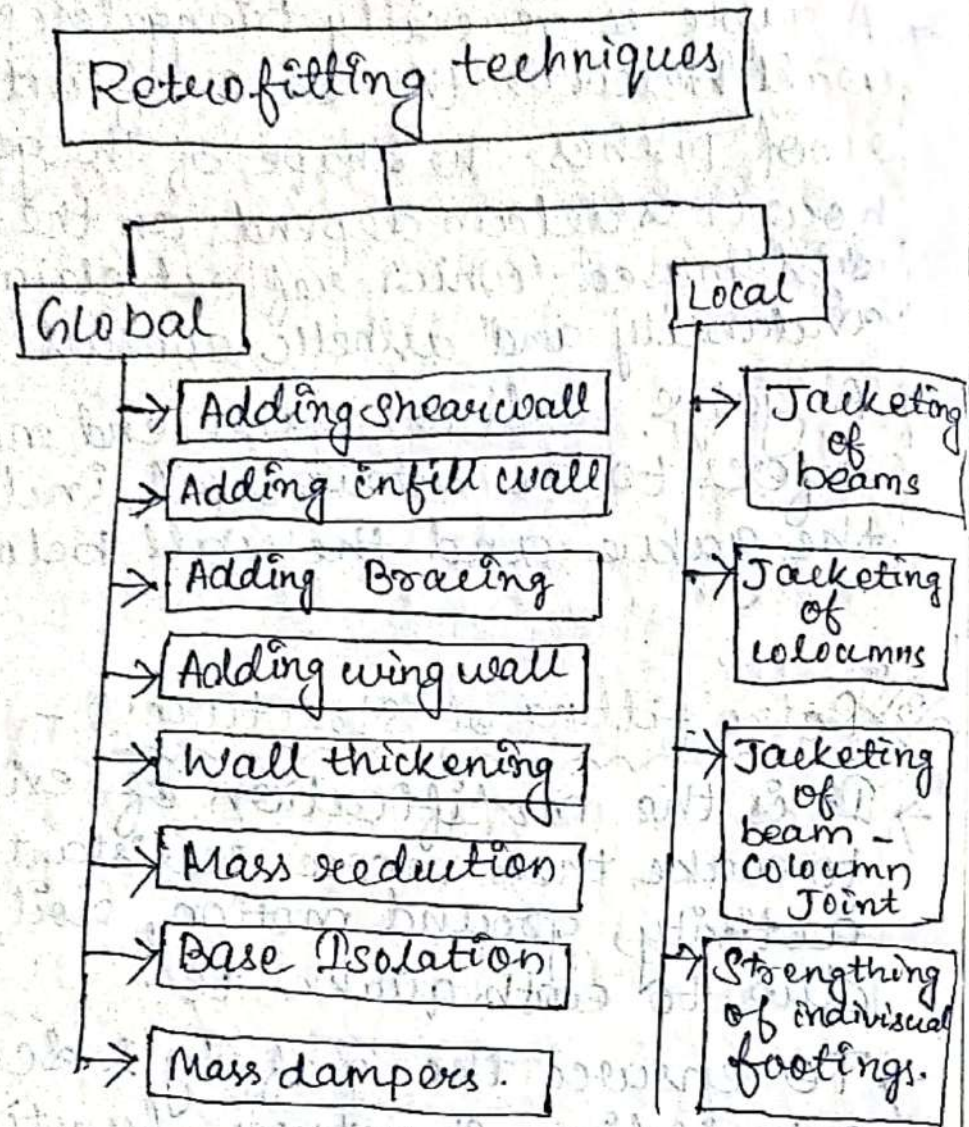 Retrofitting techniques
Global
Adding shearwall
Adding infill wall
Adding Bracing
Adding wing wall
Wall thickening
Mass reduction
Base Isolation
Mass dampers.
Local
Jacketing
of
beams
Jacketing
of
coloumns
Jacketing
of
beam -
coloumn
Joint
Strengthing
of indivisual
footings.